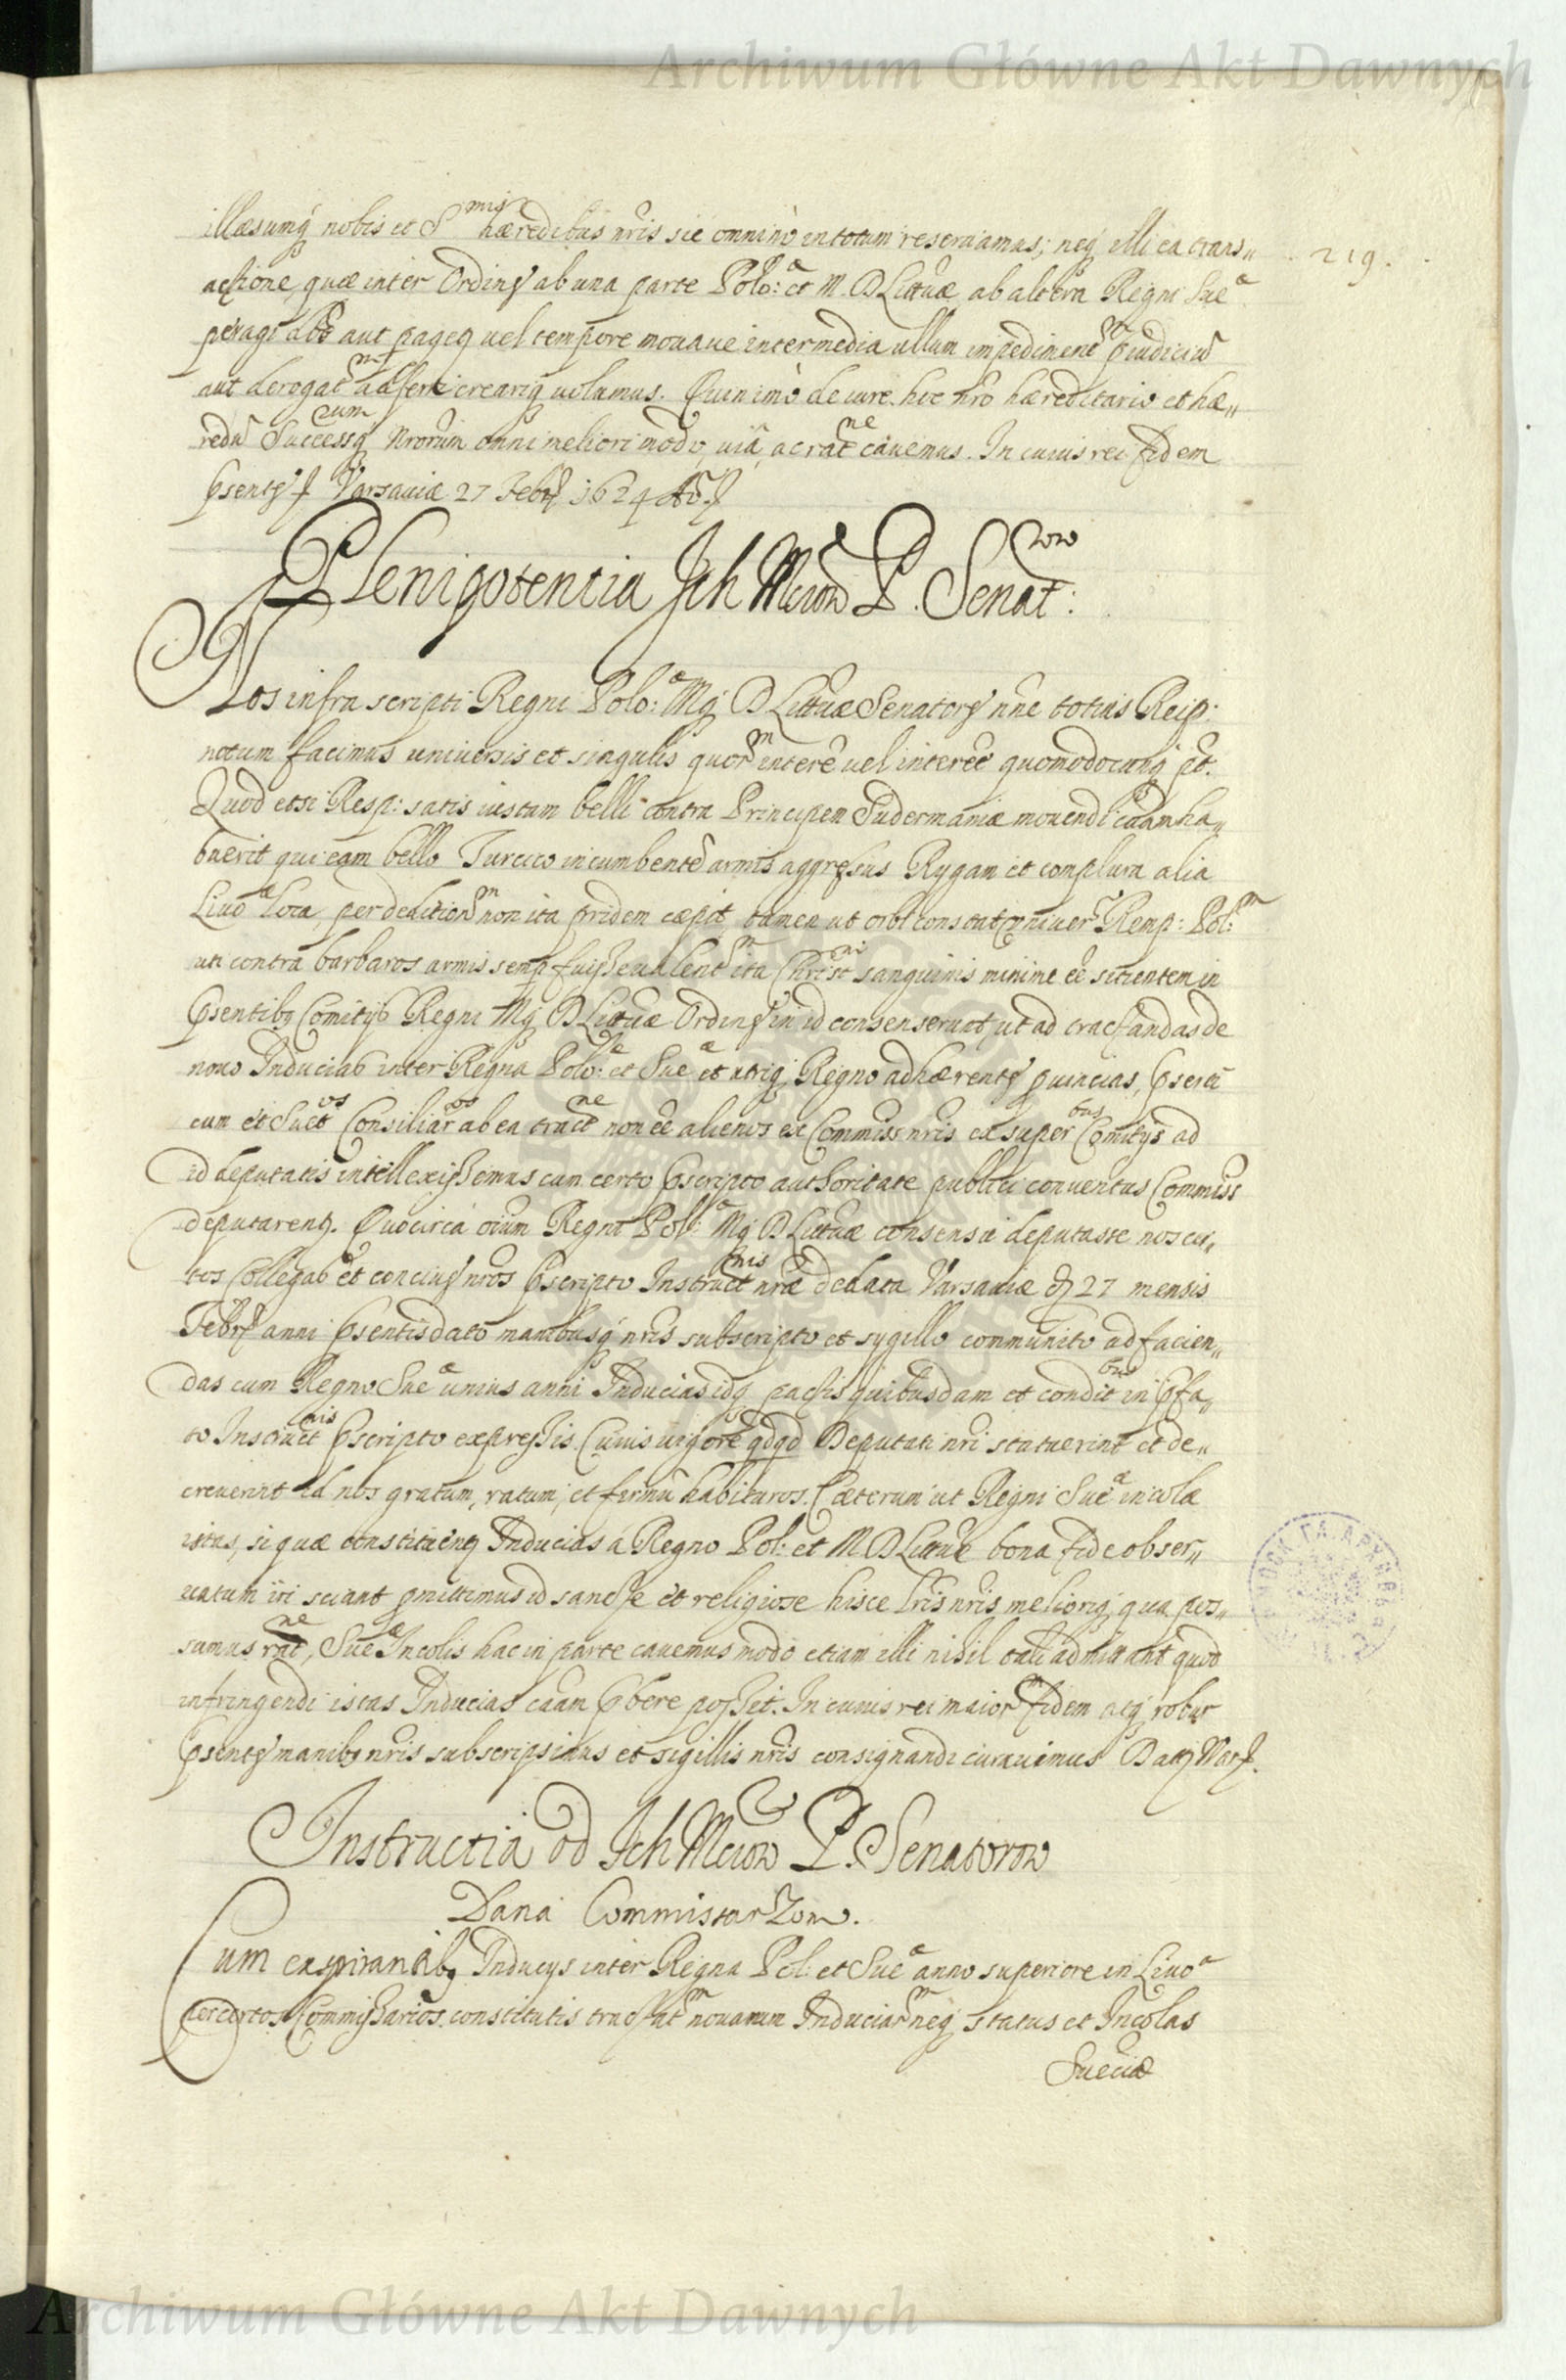 Archiwum Główne Akt Dawnych
219.
illæsumq́ nobis et S mis hæredibus nr̃is sic omninò in totum reseruamus; neq́ illi ea trans„
actione, quæ inter Ordines ab una parte Polo: æ et M. D Littuæ ab altera Regni Sue æ
peragi aut vel tempore moraue intermedia ullum impediment m
aut derogat m adferri creariq volumus. Quin imò de iure hoc nr̃o hæreditario et hæ„
redu Success rum Nrorum omni meliori modo, uiâ, ac rat ne cauemus. In cuius rei fidem
Varsauiæ 27 Febr 1624
Plenipotentia Ich Mciow P. Senat: row
Nos infra scripti Regni Polo: æ Mq́ D Littuæ Senatores nñe totius Reip:
notum facimus uniuersis et singulis quor m interẽ uel intereẽ quomodocunq́ pt̃.
Quod etsi Resp: satis iustam belli contra Principem Sudermaniæ mouendi cãam ha„
buerit qui eam bello Turcico incumbente armis aggressus Rygam et complura alia
Liuo æ loca, per dedition m non ita pridem cæpit, tamen ut orbi constat Remp: Pol: m
uti contra barbaros armis semp fuisse ualent m ita Christ ni sanguinis minime eẽ sitientem in
psentibꝫ Comitijs Regni Mq́ D Littuæ Ordines in id consenserunt, ut ad tractandas de
nouo Inducias inter Regna Polo: æ et Sue æ et utriq́ Regno adhærentes puincias, pserti
cum et Suet os Consiliar os ab ea tract ne non eẽ alienos ex Commiss nr̃is ex super bus Comitijs ad
id deputatis intellexissemus cum certo pscripto authoritate publici conuentus Commiss
deputarentꝫ. Quocirca oium Regni Pol: æ Mq́ D Littuæ consensu deputasse nos cer„
tos Collegas et conciues nr̃os pscripto Instruct nis nr̃æ de data Varsauiæ 27 mensis
Febr anni psentis dato manibusq́ nr̃is subscripto et sygillo communito ad facien„
das cum Regno Sue æ unius anni Inducias idq́ pactis quibusdam et condit bus in pfa„
to Instruct nis pscripto expressis. Cuius uigore qdqd Deputati nr̃i statuerint et de„
creuerint id nos gratum, ratum, et firmũ habituros. Cæterum ut Regni Sue æ incolæ
istas, si quæ constituentꝫ Inducias á Regno Pol: et M D Littuæ bona fide obser„
uatum iri sciant pmittimus id sancte et religiose hisce lr̃is nr̃is melioriq́ qua pos„
sumus rat ne, Sue æ Incolis hac in parte cauemus modò etiam illi nihil tale admittant quod
infringendi istas Inducias cãam pbere posset. In cuius rei maior m fidem atq́ robur
psentes manibꝫ nr̃is subscripsimus et sigillis nr̃is consignandi curauimus Datꝫ Wars.
Instructia od Ich Mciow P. Senatorow
Dana Commissarzom.
Cum expirantibꝫ Inducijs inter Regna Pol: et Sue æ anno superiore in Liuo a
per certos Commissarios constitutis tractat m nouarum Induciar m neq́ status et Incolas
Sueciæ
Archiwum Główne Akt Dawnych